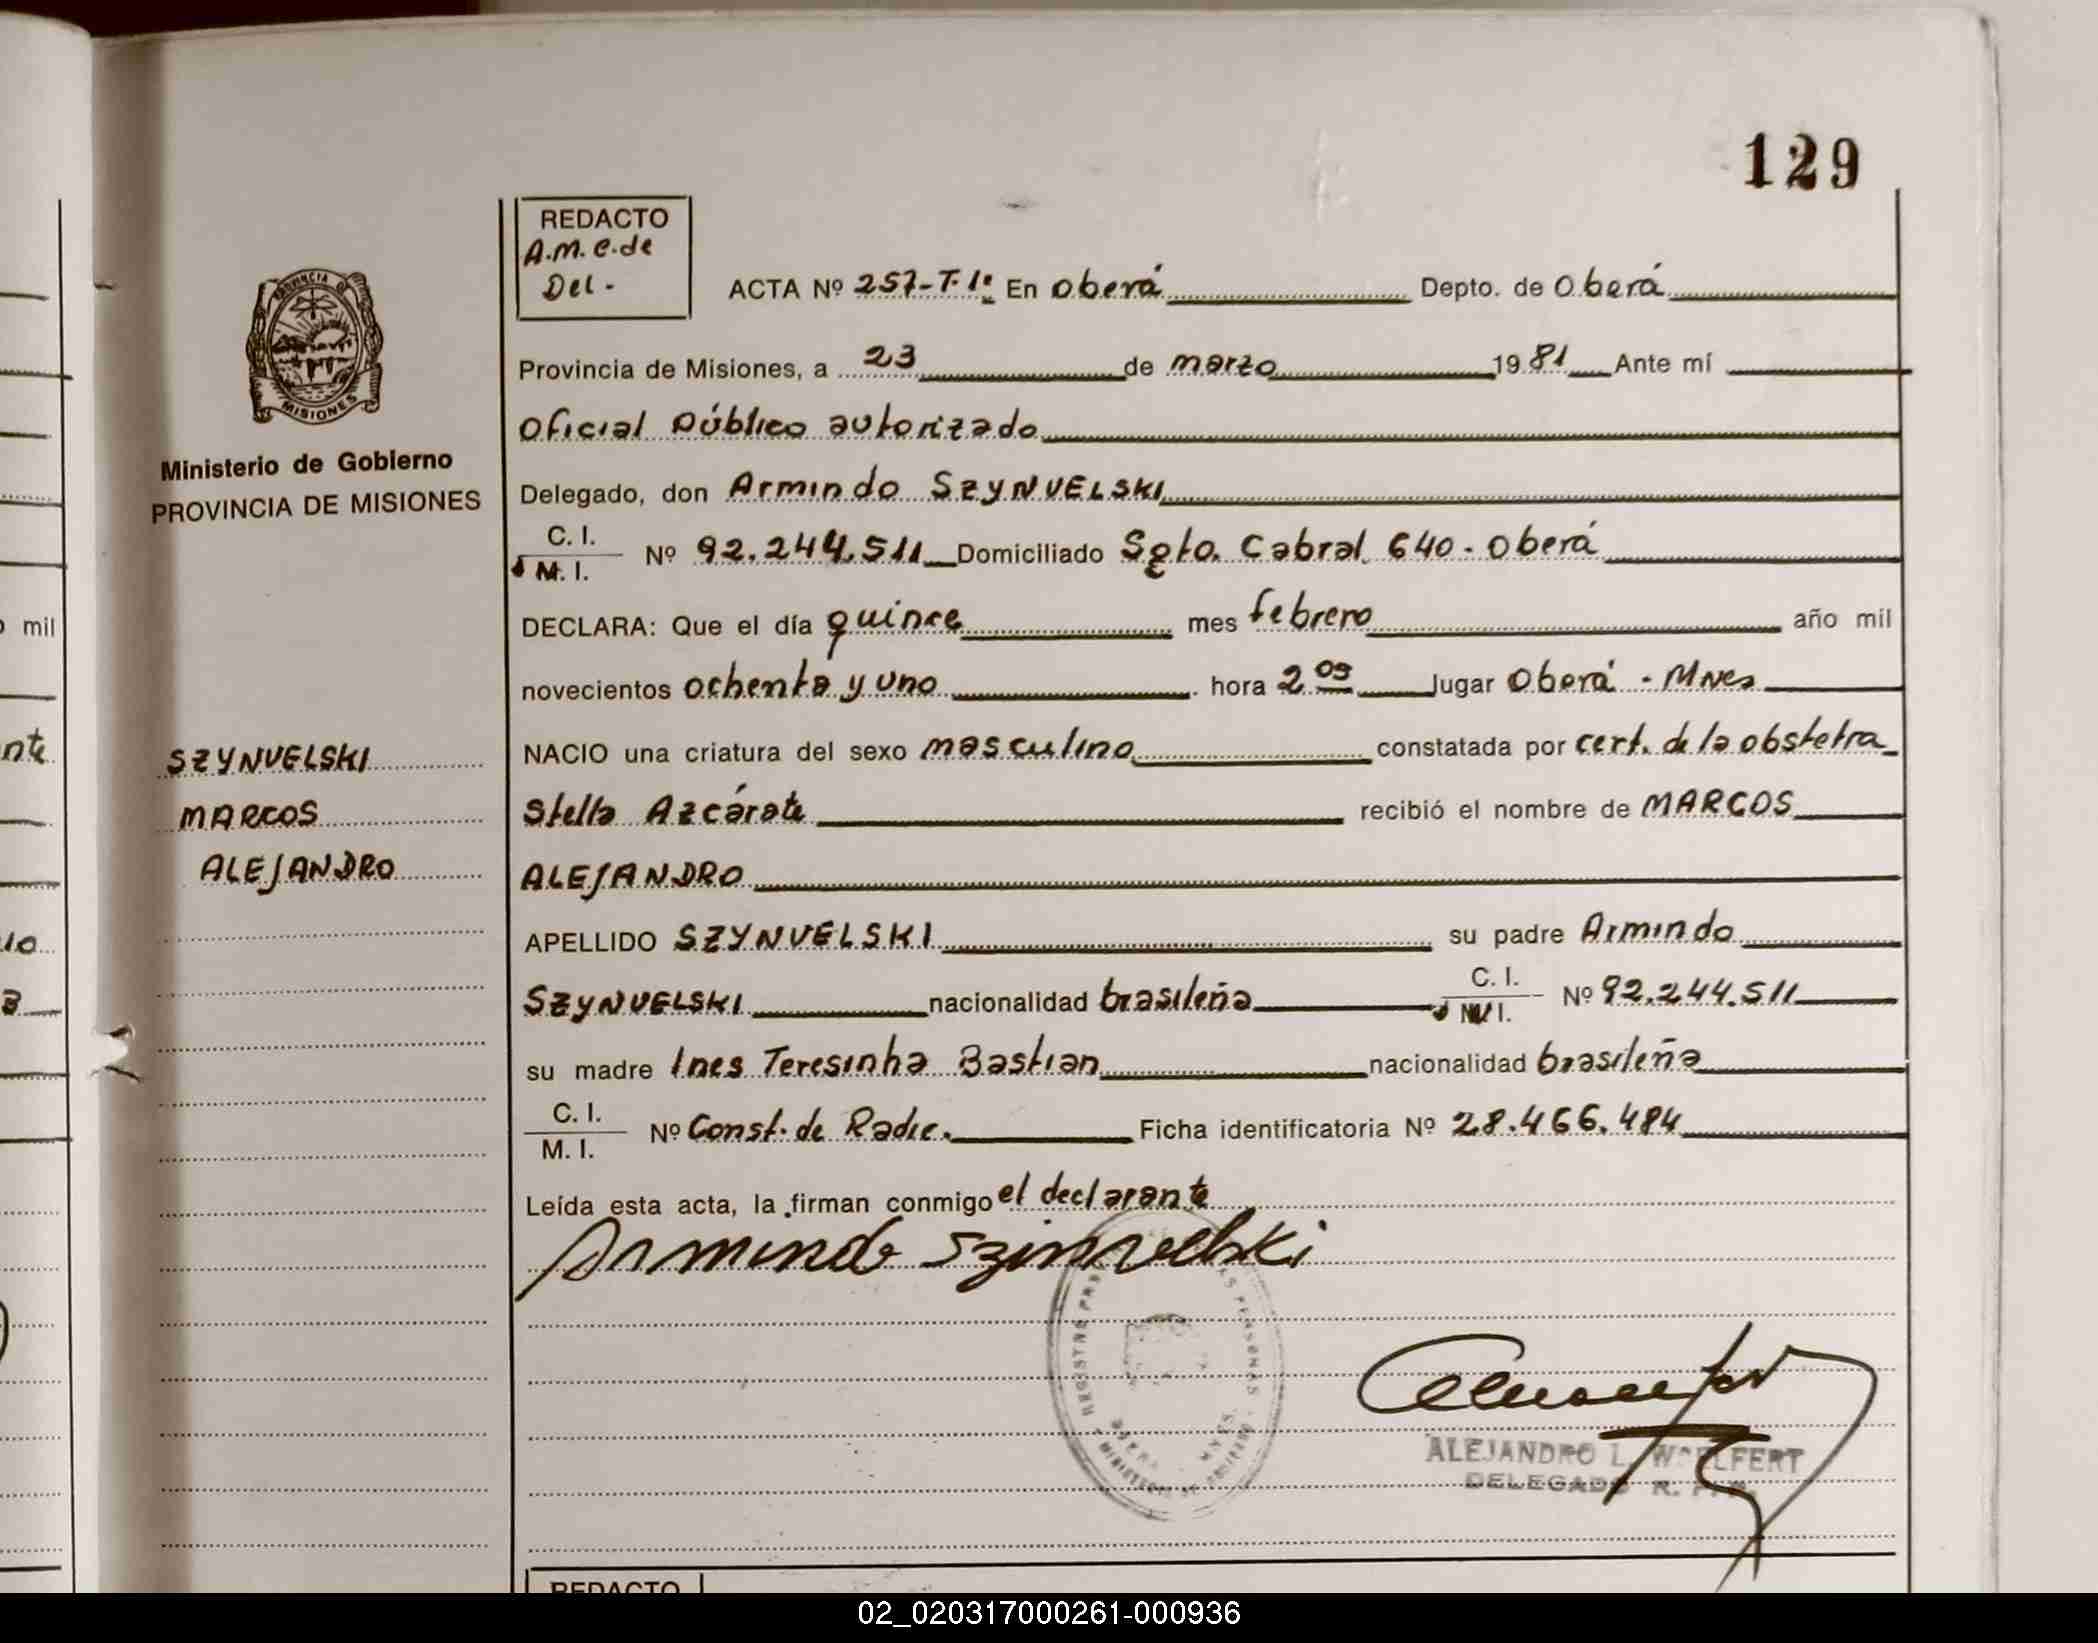 129
REDACTO
A.M.C. de
Del.-
ACTA Nº 257-T.1º En Oberá Depto. de Oberá
Provincia de Misiones, a 23 de marzo 1981 Ante mí
Oficial Público autorizado
Delegado, don Armindo SZYNVELSKI
C. I.
M. I. Nº 92.244.511 Domiciliado Sgto. Cabral 640 - Oberá
DECLARA: Que el día quince mes febrero año mil
novecientos ochenta y uno . hora 2 09 lugar Oberá - Mnes
NACIO una criatura del sexo masculino constatada por cert. de la obstetra
Stella Azcárate recibió el nombre de MARCOS
ALEJANDRO
APELLIDO SZYNVELSKI su padre Armindo
SZYNVELSKI nacionalidad brasileña C. I. M. I. Nº 92.244.511
su madre Ines Teresinha Bastian nacionalidad brasileña
C. I.
M. I. Nº Const. de Radic. Ficha identificatoria Nº 28.466.484
Leída esta acta, la firman conmigo el declarante
Armindo Szinvelski
ALEJANDRO L. WOELFERT
DELEGADO R.
PROVINCIA DE
MISIONES
Ministerio de Gobierno
PROVINCIA DE MISIONES
SZYNVELSKI
MARCOS
ALEJANDRO
mil
REDACTO
02_020317000261-000936